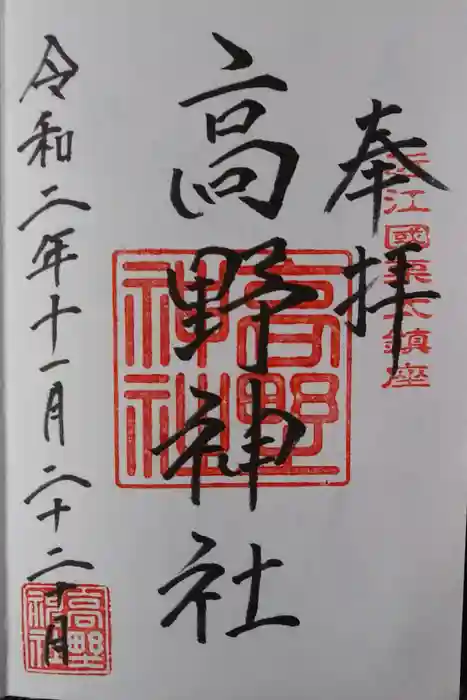 奉拝
近江國栗太鎮座
高野神社
高野
神社
令和二年十一月二十二
高野
神社